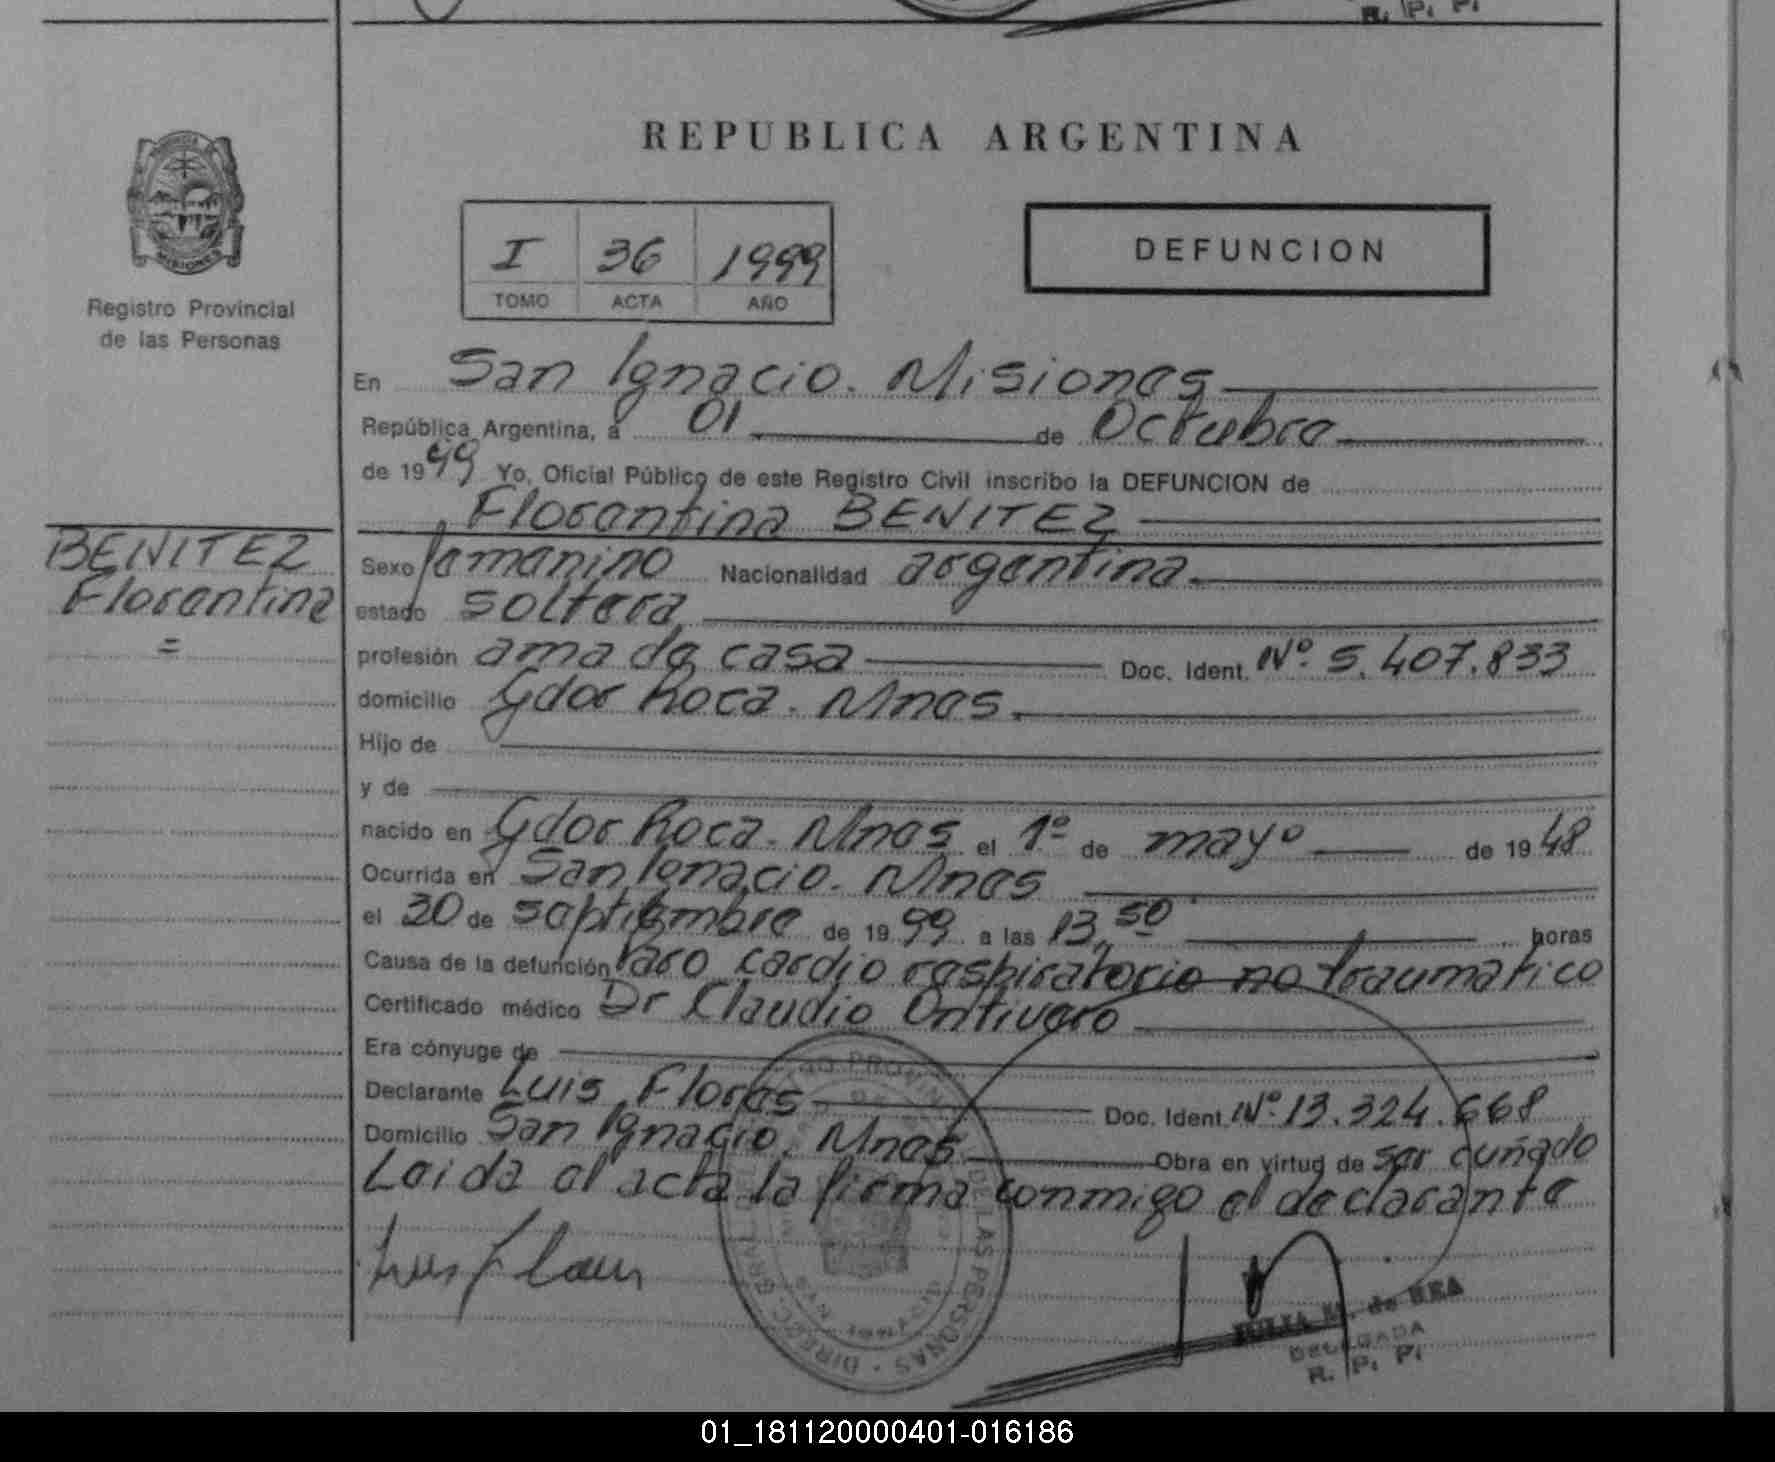 R. P. P.
REPUBLICA ARGENTINA
MISIONES
Registro Provincial
de las Personas
I 36 1999
TOMO ACTA AÑO
DEFUNCION
En San Ignacio. Misiones
República Argentina, a 01 de Octubre
de 1999 Yo, Oficial Público de este Registro Civil inscribo la DEFUNCION de
Florentina BENITEZ
BENITEZ
Florentina
=
Sexo femenino Nacionalidad argentina
estado soltera
profesión ama de casa Doc. Ident. Nº 5.407.833
domicilio Gdor Roca. Mnes.
Hijo de
y de
nacido en Gdor Roca. Mnes el 1º de mayo de 1948
Ocurrida en San Ignacio. Mnes
el 30 de septiembre de 1999 a las 13,50 horas
Causa de la defunción Paro cardio respiratorio no traumatico
Certificado médico Dr Claudio Ontivero
Era cónyuge de
Declarante Luis Flores Doc. Ident. Nº 13.324.668
Domicilio San Ignacio. Mnes Obra en virtud de ser cuñado
Leida el acta la firma conmigo el declarante
Luis Flores
DE LAS PERSONAS
JULIA M. de REA
DELEGADA
R. P. P.
01_181120000401-016186